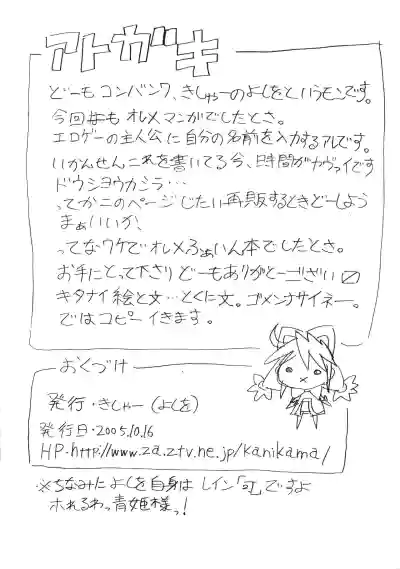 アトガキ
どーも コンバンワ、きしゃーのよしをというモンです。
今回もオレメマンガでしたとさ。
エロゲーの主人公に自分の名前を入力するアレです。
いかんせんこれを書いてる今、時間がヤヴァイです
ドウシヨウカシラ…
ってかこのページじたい再販するときどーしよう
まぁいいか、
ってなワケでオレメふぁいん本でしたとさ。
お手にとって下さりどーもありがとーござい〼
キタナイ絵と文…とくに文。ゴメンナサイネー。
ではコピーイきます。
おくづけ
発行・きしゃー(よしを)
発行日・2005.10.16
HP・http://www.za.ztv.ne.jp/kanikama/
※ちなみによしを自身はレイン「 」ですよ
ホれるわっ青姫様っ!